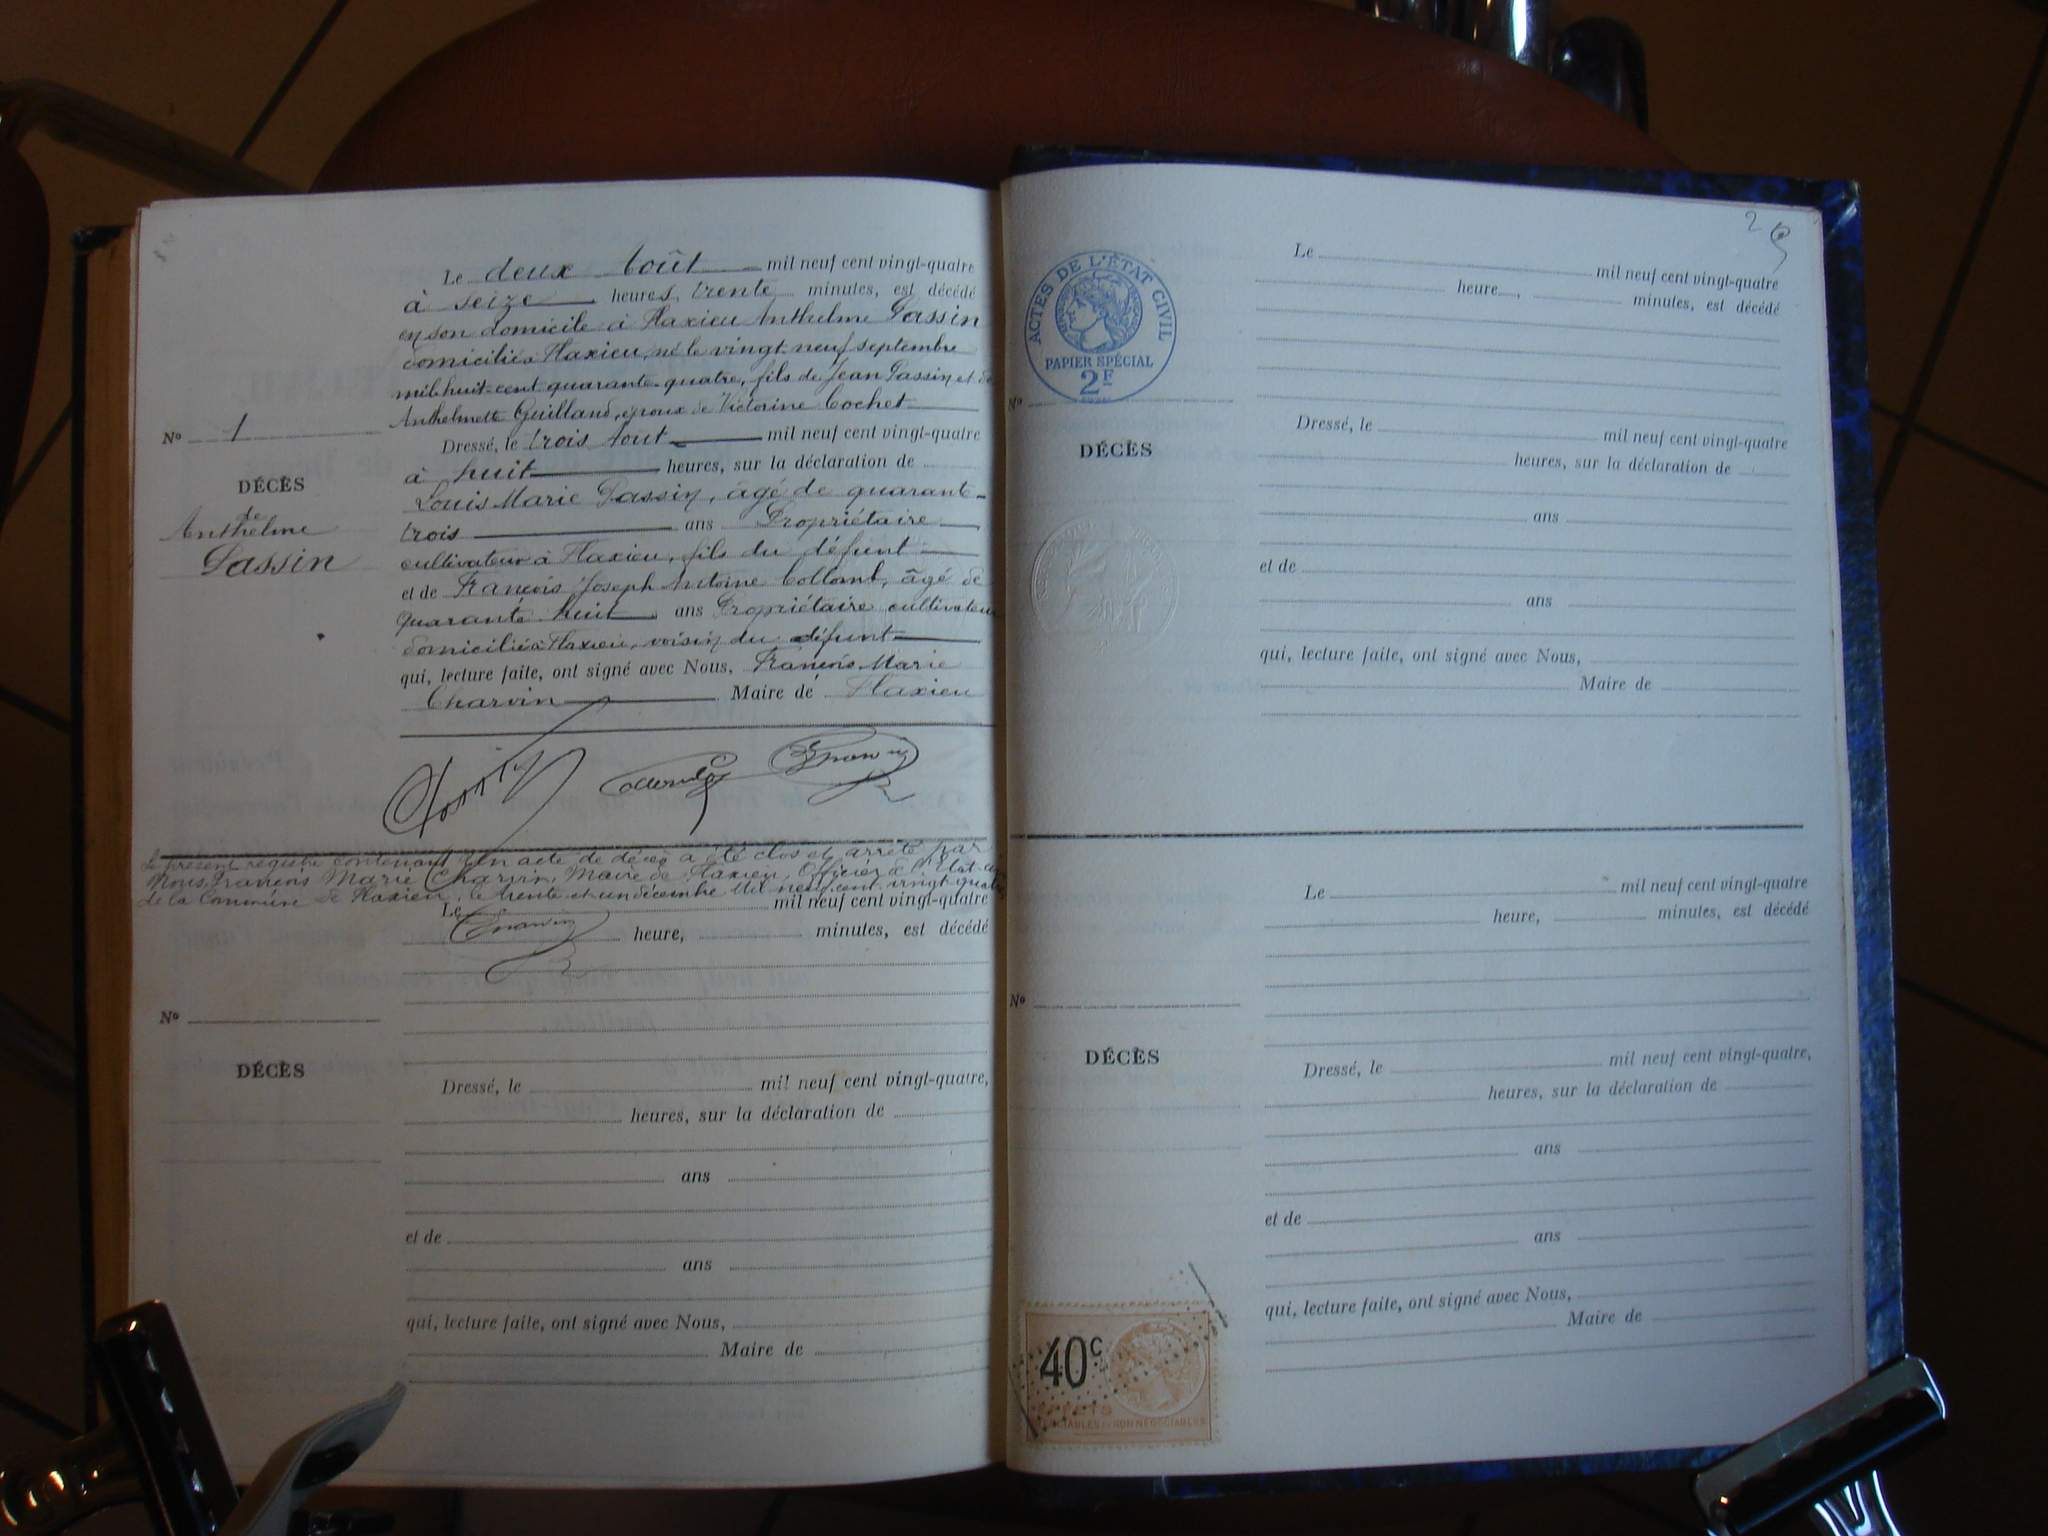 Le deux Août mil neuf cent vingt-quatre
à seize heures, trente minutes, est décédé
en son domicile à Flaxieu Anthelme Passin
domicilié à Flaxieu, né le vingt-neuf septembre
mil huit-cent quarante-quatre, fils de Jean Passin et de
Anthelmette Guilland, époux de Victorine Cochet
Nº 1
Dressé, le trois Aout mil neuf cent vingt-quatre
à huit heures, sur la déclaration de
DÉCÈS
de
Anthelme
Passin
Louis Marie Passin, âgé de quarante-
trois ans Propriétaire
cultivateur à Flaxieu, fils du défunt
et de François Joseph Antoine Collomb, âgé de
quarante huit ans Propriétaire cultivateur
domicilié à Flaxieu, voisin du défunt
qui, lecture faite, ont signé avec Nous, François Marie
Charvin Maire de Flaxieu
Passin
Charvin
Le présent registre contenant un acte de décès a été clos et arrêté par
Nous François Marie Charvin, Maire de Flaxieu, Officier de l'Etat-civil
de la Commune de Flaxieu, le trente et un décembre mil neuf cent vingt quatre
Charvin
Le mil neuf cent vingt-quatre
heure, minutes, est décédé
Nº
DÉCÈS
Dressé, le mil neuf cent vingt-quatre,
heures, sur la déclaration de
ans
et de
ans
qui, lecture faite, ont signé avec Nous,
Maire de
2
ACTES DE L'ÉTAT CIVIL
PAPIER SPÉCIAL
2F
Le mil neuf cent vingt-quatre
heure, minutes, est décédé
Nº
DÉCÈS
Dressé, le mil neuf cent vingt-quatre
heures, sur la déclaration de
ans
et de
ans
qui, lecture faite, ont signé avec Nous,
Maire de
Le mil neuf cent vingt-quatre
heure, minutes, est décédé
Nº
DÉCÈS
Dressé, le mil neuf cent vingt-quatre,
heures, sur la déclaration de
ans
et de
ans
qui, lecture faite, ont signé avec Nous,
Maire de
40c